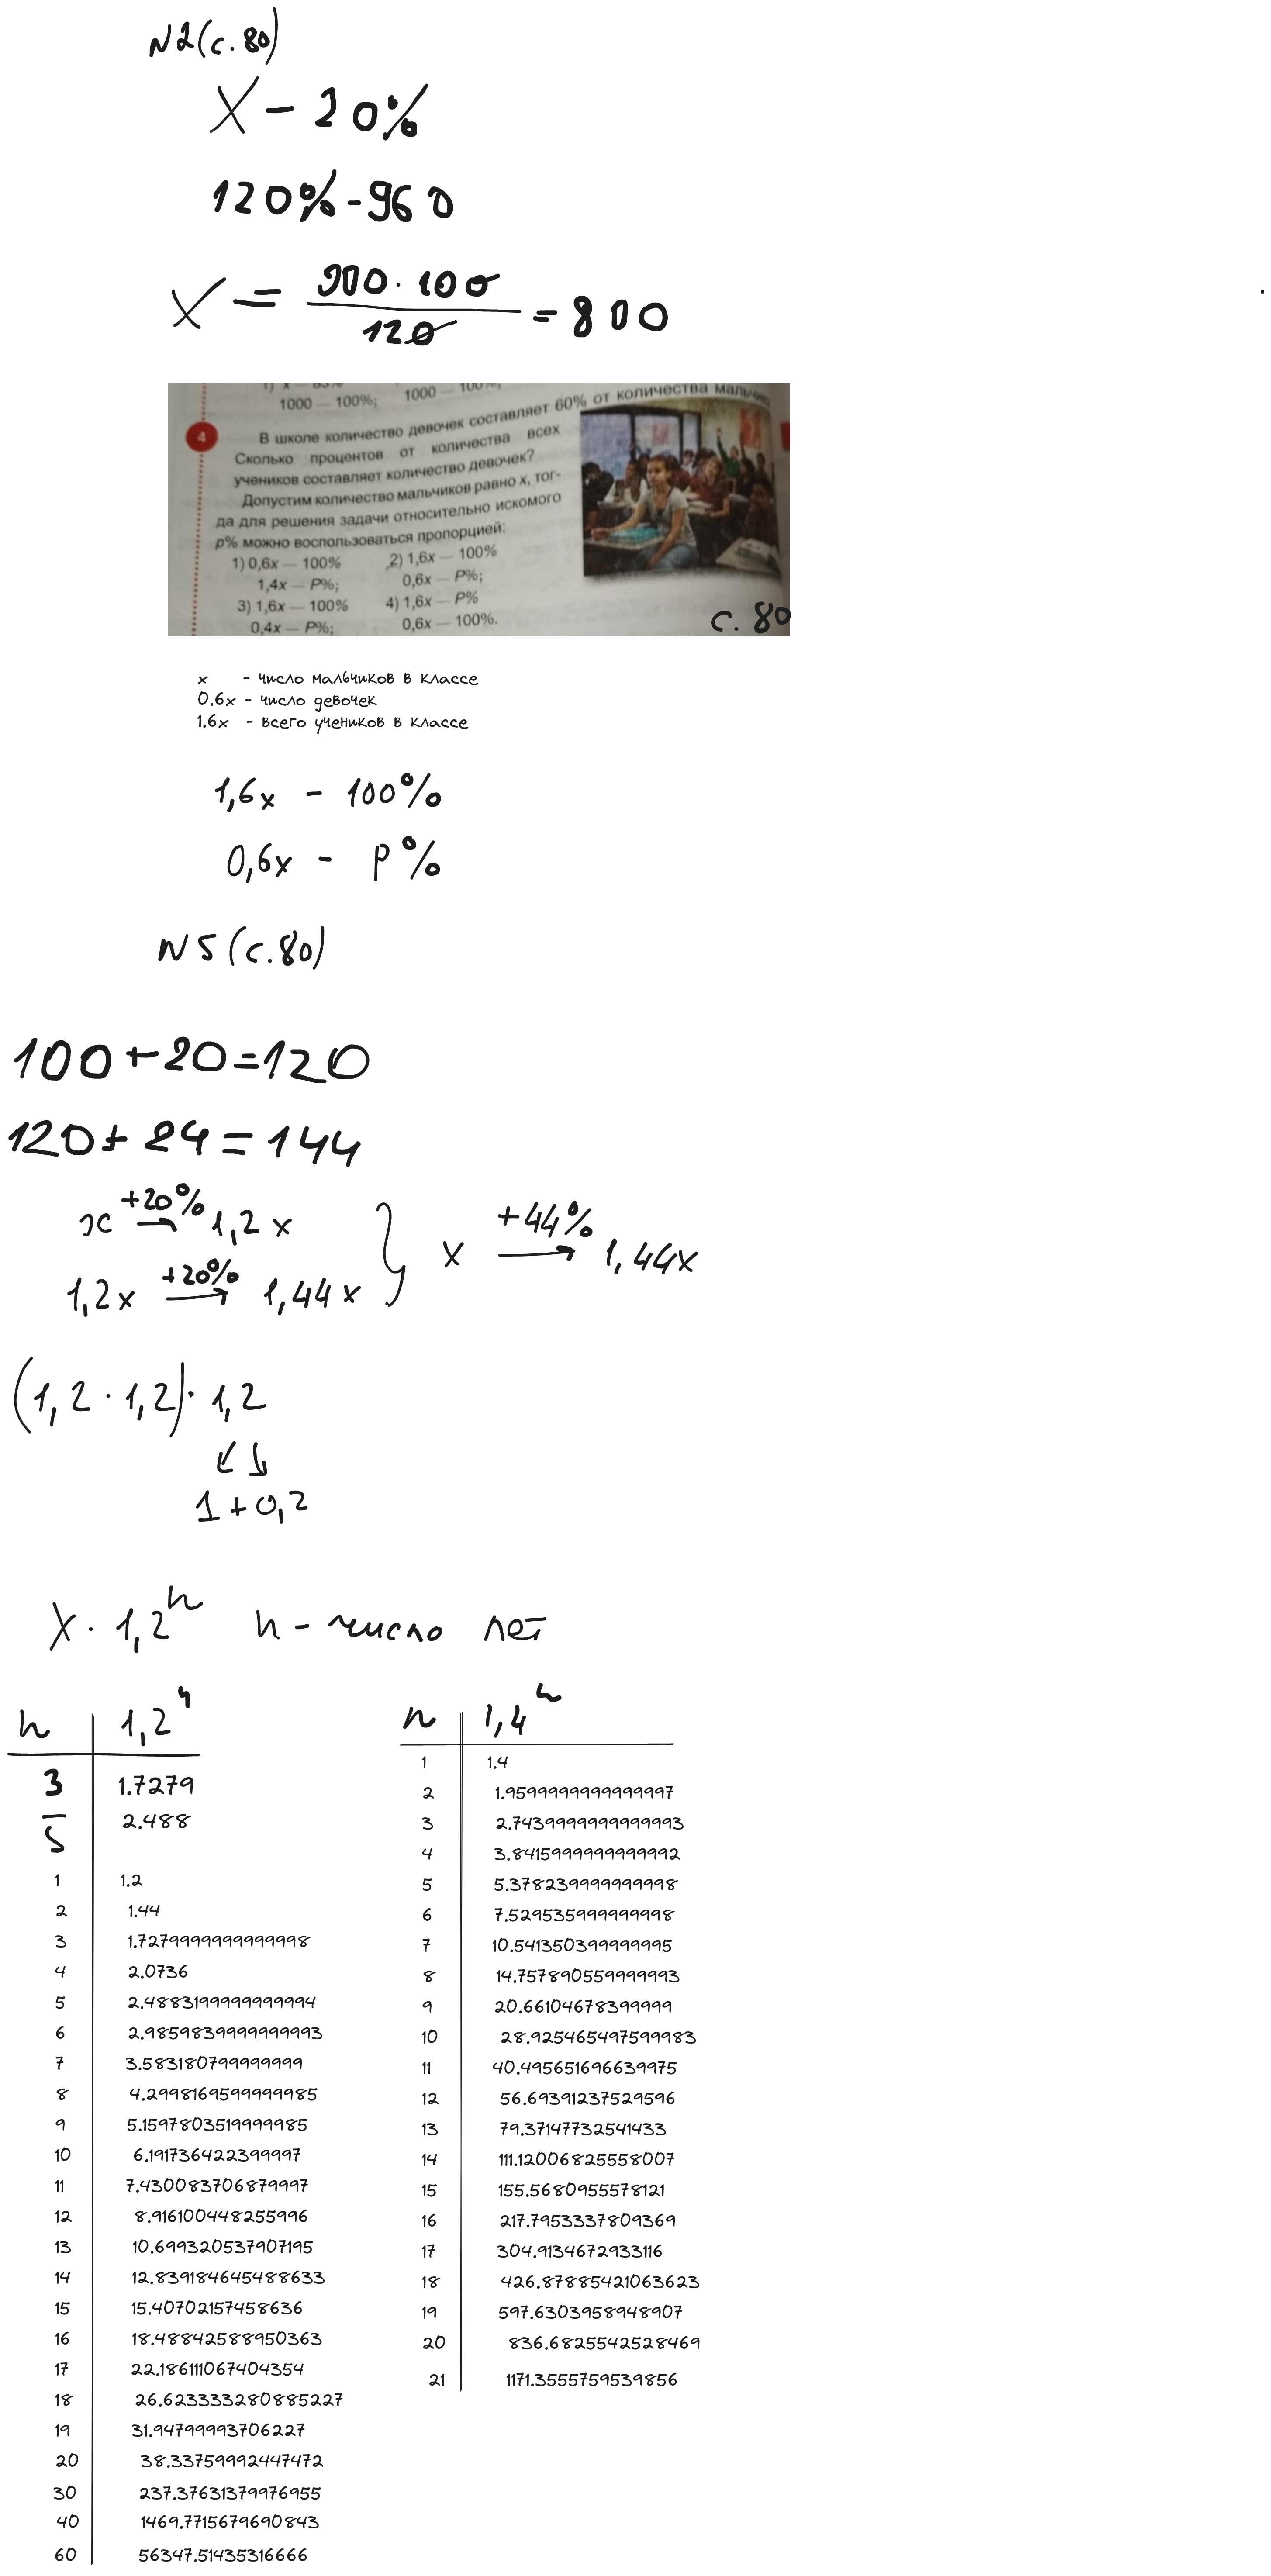 N2(с. 80)
X - 20%
120% - 960
X = 900 · 100 / 120 = 800
1000 — 100%; 1000 — 100%;
4
В школе количество девочек составляет 60% от количества мальчи
Сколько процентов от количества всех
учеников составляет количество девочек?
Допустим количество мальчиков равно x, тог-
да для решения задачи относительно искомого
p% можно воспользоваться пропорцией:
1) 0,6x — 100% 2) 1,6x — 100%
1,4x — P%; 0,6x — P%;
3) 1,6x — 100% 4) 1,6x — P%
0,4x — P%; 0,6x — 100%.
с. 80
x - число мальчиков в классе
0.6x - число девочек
1.6x - всего учеников в классе
1,6x - 100%
0,6x - P%
N5 (с. 80)
100 + 20 = 120
120 + 24 = 144
x +20% → 1,2x
1,2x +20% → 1,44x } x +44% → 1,44x
(1,2 · 1,2) · 1,2
1 + 0,2
X · 1,2^n n - число лет
n 1,2^n
3 1.7279
5 2.488
1 1.2
2 1.44
3 1.7279999999999998
4 2.0736
5 2.4883199999999994
6 2.9859839999999993
7 3.583180799999999
8 4.2998169599999985
9 5.1597803519999985
10 6.191736422399997
11 7.430083706879997
12 8.916100448255996
13 10.699320537907195
14 12.839184645488633
15 15.40702157458636
16 18.48842588950363
17 22.186111067404354
18 26.623333280885227
19 31.94799993706227
20 38.33759992447472
30 237.37631379976955
40 1469.7715679690843
60 56347.51435316666
n 1,4^n
1 1.4
2 1.9599999999999997
3 2.7439999999999993
4 3.8415999999999992
5 5.378239999999998
6 7.529535999999998
7 10.541350399999995
8 14.757890559999993
9 20.66104678399999
10 28.925465497599983
11 40.495651696639975
12 56.69391237529596
13 79.37147732541433
14 111.12006825558007
15 155.5680955578121
16 217.7953337809369
17 304.9134672933116
18 426.87885421063623
19 597.6303958948907
20 836.6825542528469
21 1171.3555759539856